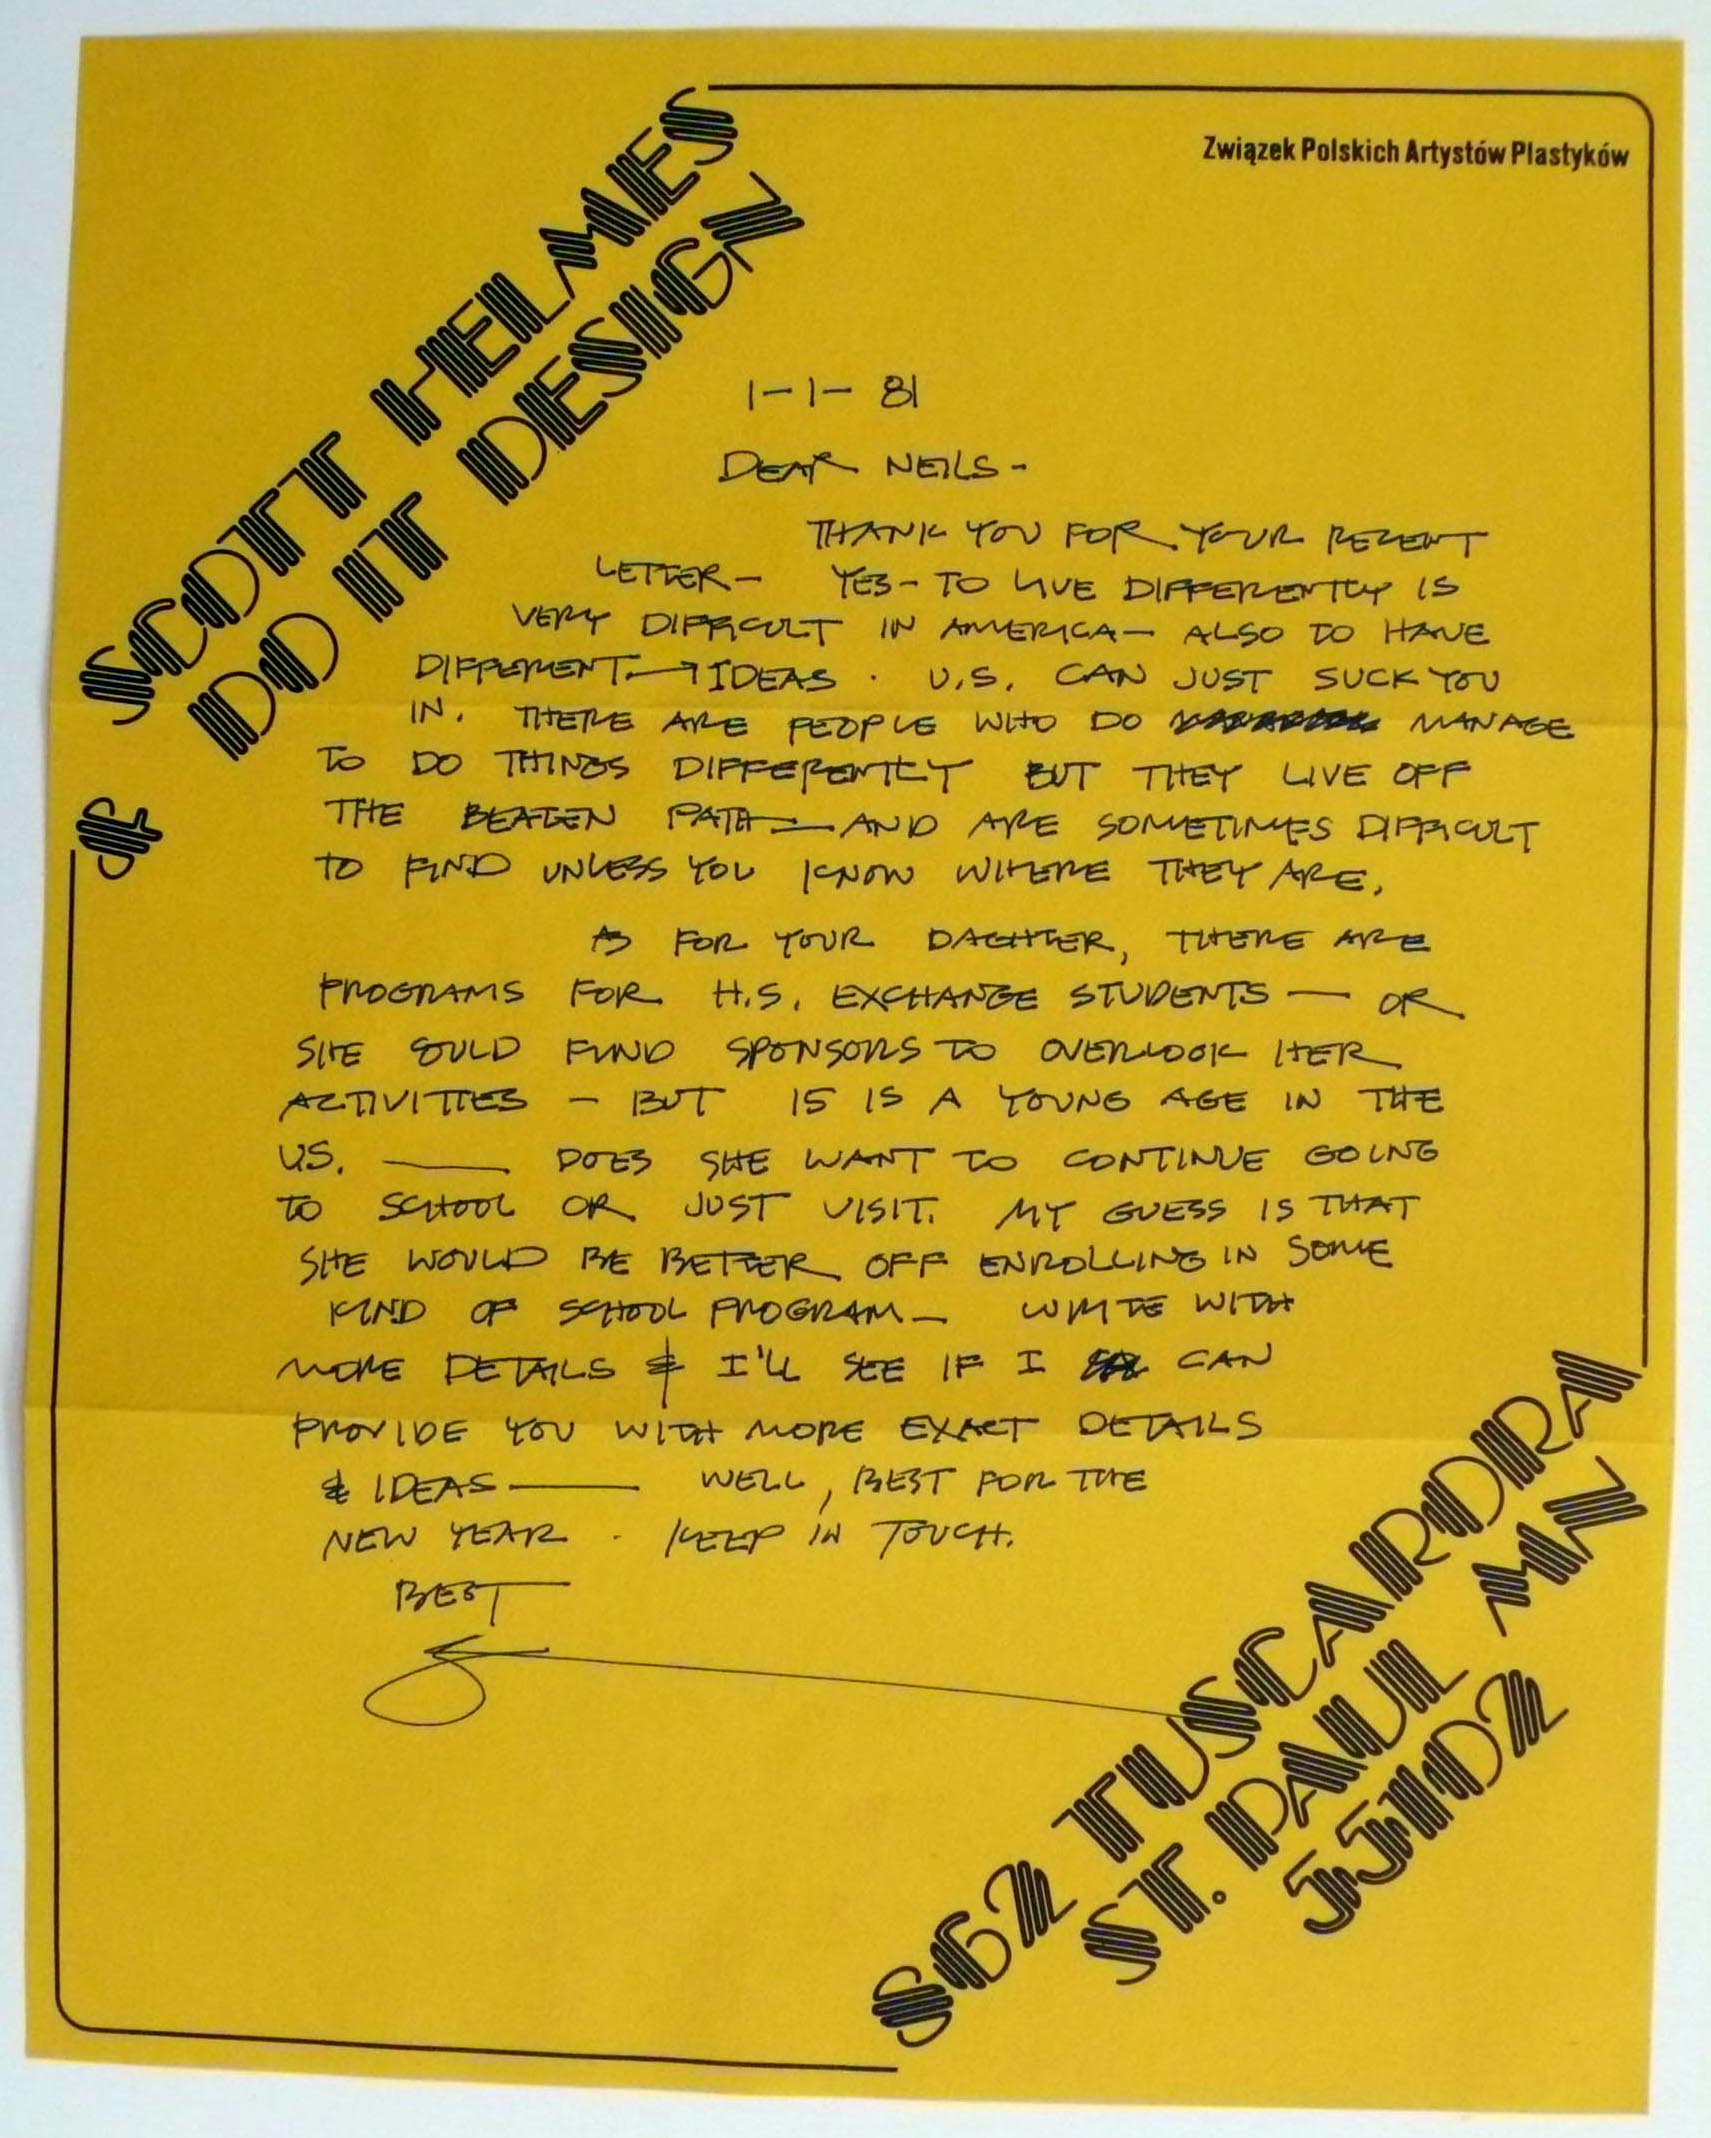 Związek Polskich Artystów Plastyków
SCOTT HELMES
DO IT DESIGN
1-1-81
DEAR NEILS -
THANK YOU FOR YOUR RECENT
LETTER — YES - TO LIVE DIFFERENTLY IS
VERY DIFFICULT IN AMERICA — ALSO TO HAVE
DIFFERENT → IDEAS. U.S. CAN JUST SUCK YOU
IN. THERE ARE PEOPLE WHO DO MANAGE
TO DO THINGS DIFFERENTLY BUT THEY LIVE OFF
THE BEATEN PATH — AND ARE SOMETIMES DIFFICULT
TO FIND UNLESS YOU KNOW WHERE THEY ARE.
AS FOR YOUR DAGHTER, THERE ARE
PROGRAMS FOR H.S. EXCHANGE STUDENTS — OR
SHE COULD FIND SPONSORS TO OVERLOOK HER
ACTIVITIES — BUT 15 IS A YOUNG AGE IN THE
U.S. — DOES SHE WANT TO CONTINUE GOING
TO SCHOOL OR JUST VISIT. MY GUESS IS THAT
SHE WOULD BE BETTER OFF ENROLLING IN SOME
KIND OF SCHOOL PROGRAM — WRITE WITH
MORE DETAILS & I'LL SEE IF I CAN
PROVIDE YOU WITH MORE EXACT DETAILS
& IDEAS — WELL, BEST FOR THE
NEW YEAR. KEEP IN TOUCH.
BEST
862 TUSCARORA
ST. PAUL MN
55102